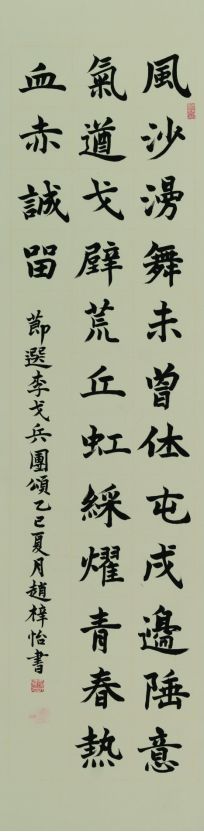 風沙漫舞未曾休屯戍邊陲意
氣遒戈壁荒丘虹綵耀青春熱
血赤誠留
節選李戈兵團頌乙巳夏月趙梓怡書